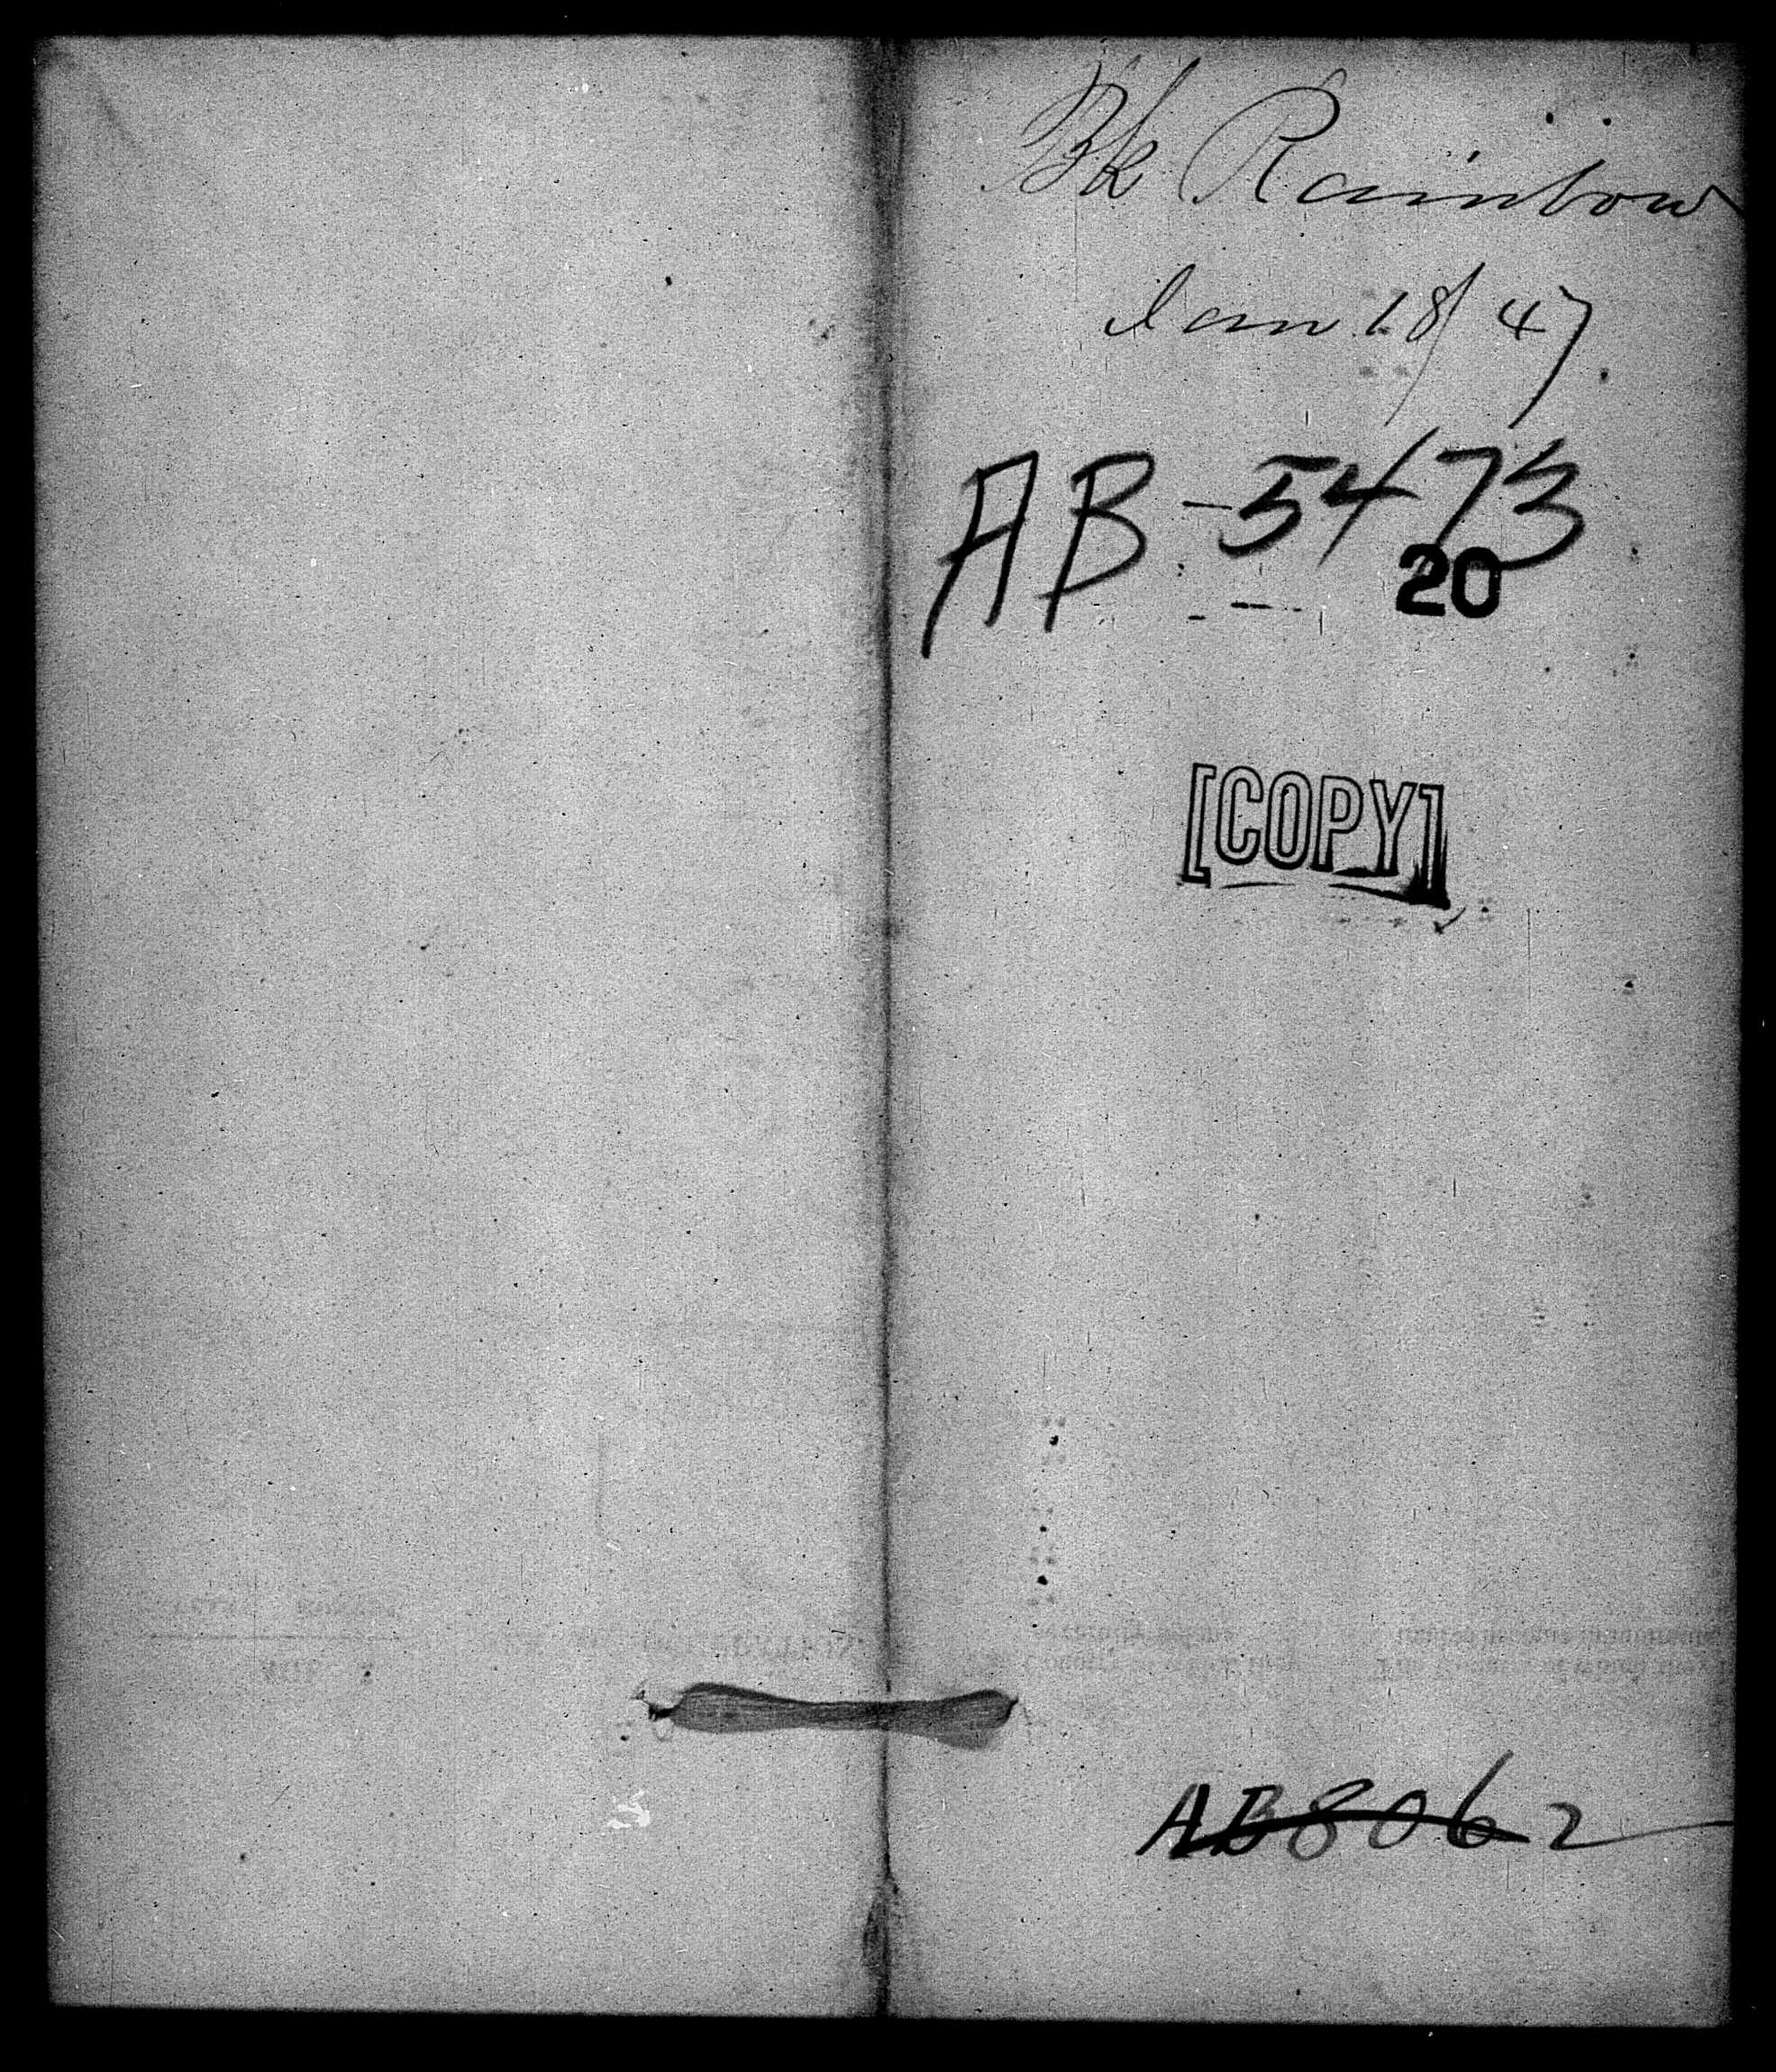 Bk Rainbow
Jan 18/47.
AB-5473
20
[COPY]
AB8062